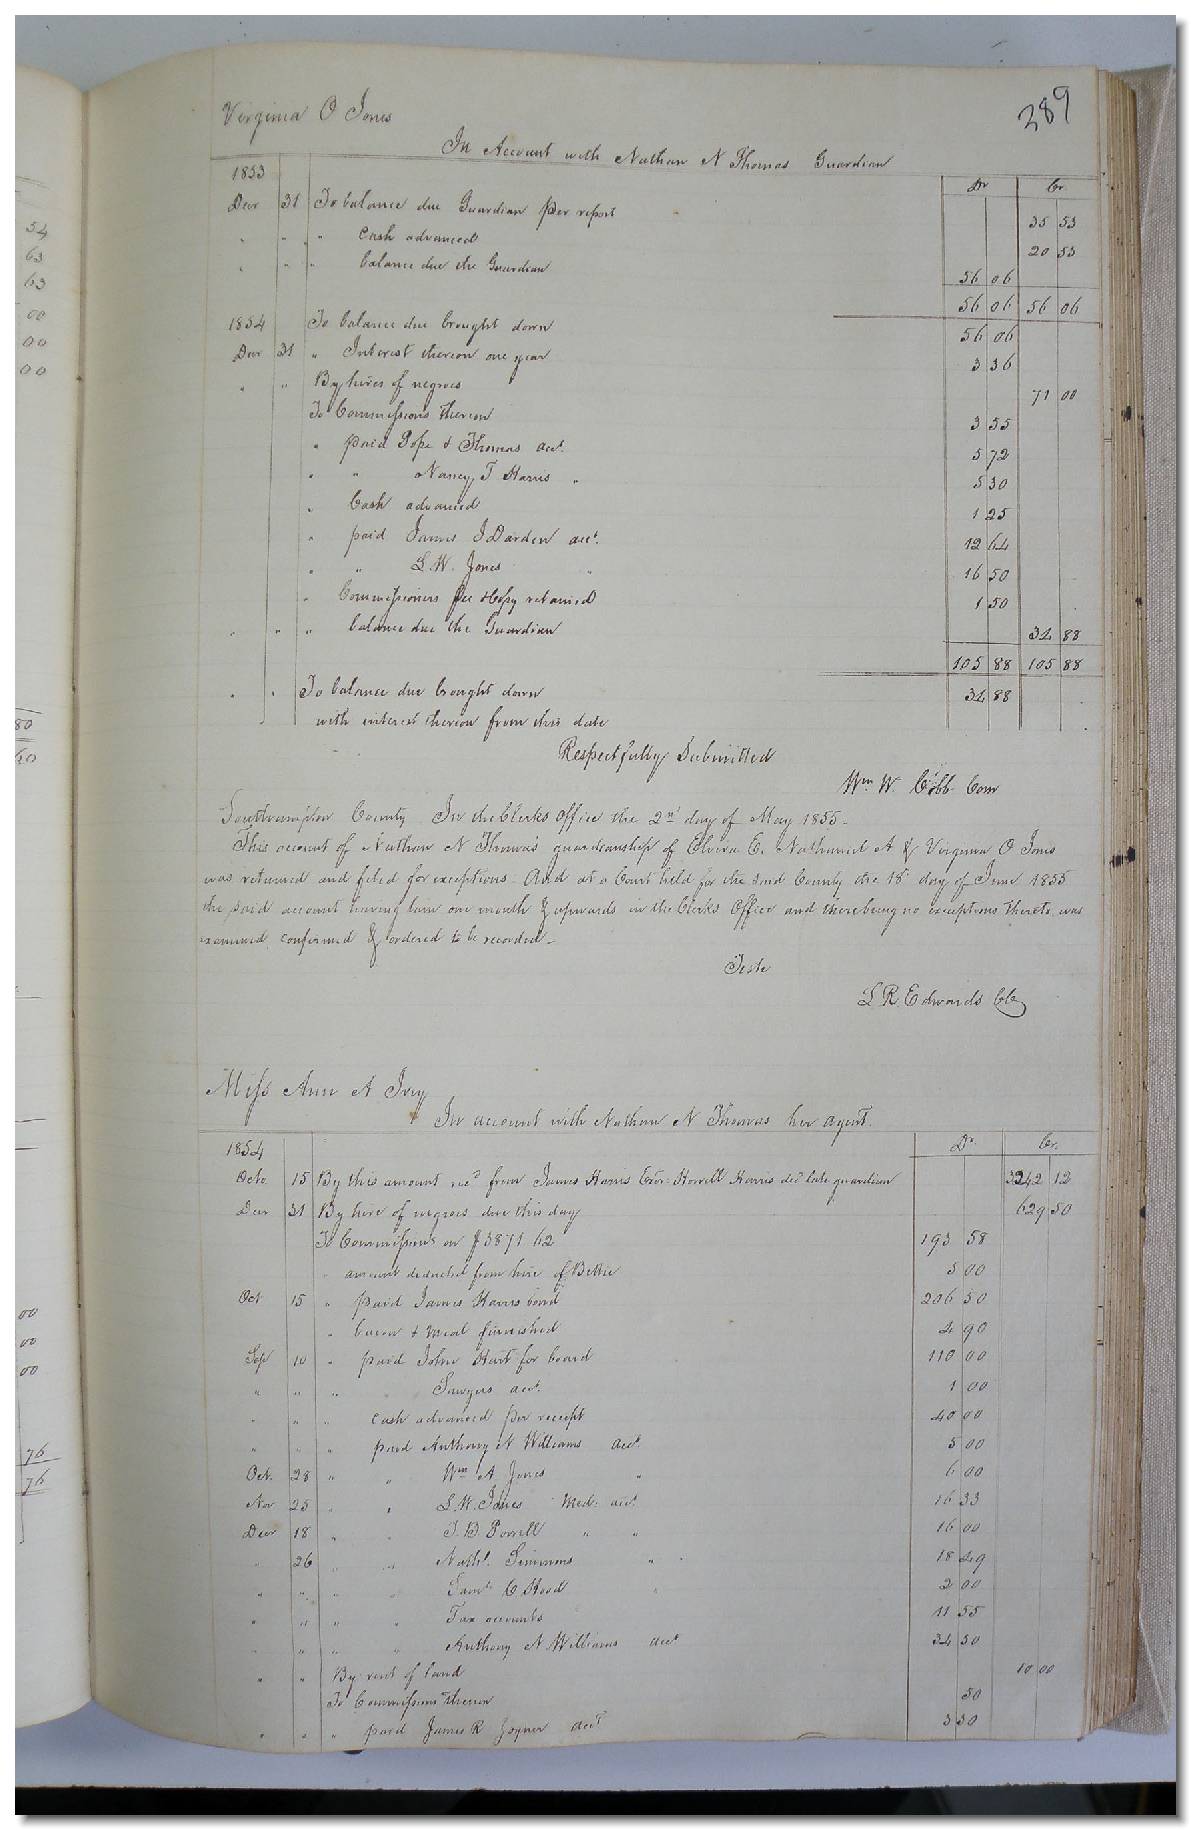 54
63
63
00
00
00
80
40
00
00
00
76
76
389
Virginia O Jones
In Account with Nathan N Thomas Guardian
1853 Dr Cr
Decr 31 To balance due Guardian per report 35 53
" " " Cash advanced 20 53
" " " balance due the Guardian 56 06
56 06 56 06
1854 To balance due brought down 56 06
Decr 31 " Interest thereon one year 3 36
" " By hires of negroes 71 00
To Commissions thereon 3 55
" paid Pope & Thomas acct. 5 72
" " Nancy T Harris " 5 30
" Cash advanced 1 25
" paid James J Darden acct. 12 64
" " L. W. Jones " 16 50
" Commissioners fee & Copy retained 1 50
" " " balance due the Guardian 34 88
105 88 105 88
" " To balance due brought down 34 88
with interest thereon from this date
Respectfully Submitted
Wm W. Cobb Com
Southampton County In the Clerks Office the 2nd day of May 1855.
This account of Nathan N Thomas guardianship of Elvira E. Nathaniel A & Virginia O Jones
was returned and filed for exceptions. And at a Court held for the said County the 18 day of June 1855
the said account having lain one month & upwards in the Clerks Office and there being no exceptions thereto was
examined confirmed & ordered to be recorded.
Teste
L R. Edwards CC
Miss Ann A Ivy
In account with Nathan N Thomas her agent.
1854 Dr. Cr.
Octo 15 By this amount recd from James Harris Exor. Howell Harris decd late guardian 3242 12
Decr 31 By hire of negroes due this day 629 50
To Commissions on $3871 62 193 58
" amount deducted from hire of Bettie 5 00
Oct 15 " paid James Harris bond 206 50
" bacon & meal furnished 4 90
Sep 10 " paid John Hart for board 110 00
" " " " Sawyers acct. 1 00
" " " cash advanced per receipt 40 00
" " " paid Anthony N Williams acct. 5 00
Oct. 28 " " Wm A Jones " 6 00
Nov 25 " " L. W. Jones Med. acct. 16 33
Decr 18 " " J. B. Powell " " 16 00
" 26 " " Nathl. Simmons " 18 49
" " " " Saml. C Hood " 2 00
" " " " Tax accounts 11 55
" " " " Anthony N Williams acct 34 50
" " By rent of land 10 00
To Commissions thereon 50
" " " paid James R Joyner acct 3 30